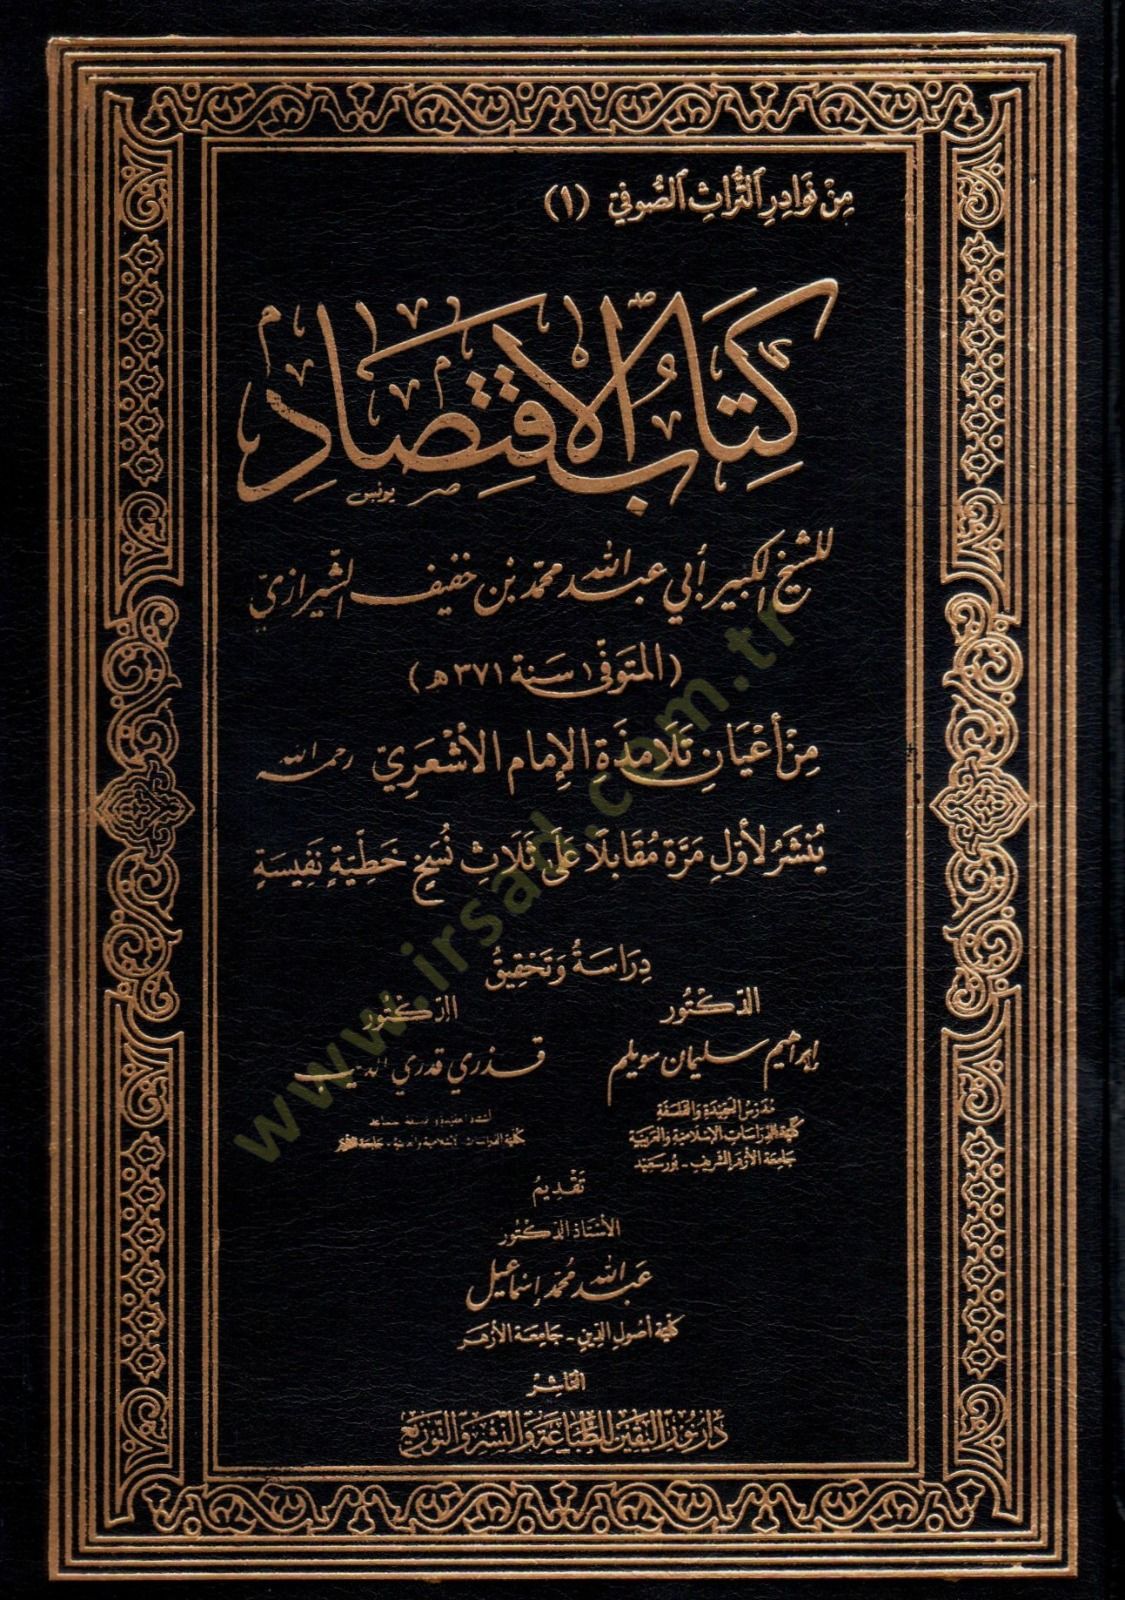 مِنْ نَوَادِرِ التُّرَاثِ الصُّوفِيِّ (١)
كِتَابُ الِاقْتِصَادِ
يونس
للشيخ الكبير أبي عبد الله محمد بن خفيف الشيرازيّ
(المتوفَّى سَنة ٣٧١ هـ)
مِنْ أَعْيَانِ تَلَامِذَةِ الإِمَامِ الأَشْعَرِيِّ رحمه الله
يُنْشَرُ لأوّلِ مَرَّة مُقَابلًا عَلَى ثَلَاثِ نُسَخٍ خَطِّيَّةٍ نَفِيسَةٍ
دِرَاسَةُ وَتَحْقِيقُ
الدّكتُور الدّكتُور
إبراهيم سليمان سويلم قذري قدري
مُدَرّس العَقِيدَة والفَلسَفَة
كُليّة الدّرَاسَات الإسْلاميّة والعَرَبيّة كليّة الدراسات الإسلامية والعربية - جامعة الأزهر
جَامِعَة الأزهَر الشّريف - بُورسَعِيد
تَقْدِيمُ
الأُسْتَاذ الدّكتُور
عَبد الله مُحمّد إسْمَاعيل
كلّية أصُول الدّين - جَامِعَة الأزهَر
النَّاشِرُ
دَار نُور اليَقِين للطِّبَاعَةِ وَالنَّشْرِ وَالتَّوْزِيعِ
www.irsad.com.tr